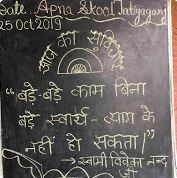 Date: Apna Skool Jatiyaganj
25 Oct 2019
आज का सुविचार
"बड़े-बड़े काम बिना
बड़े स्वार्थ-त्याग के
नहीं हो सकता।"
→ स्वामी विवेका नन्द
जी